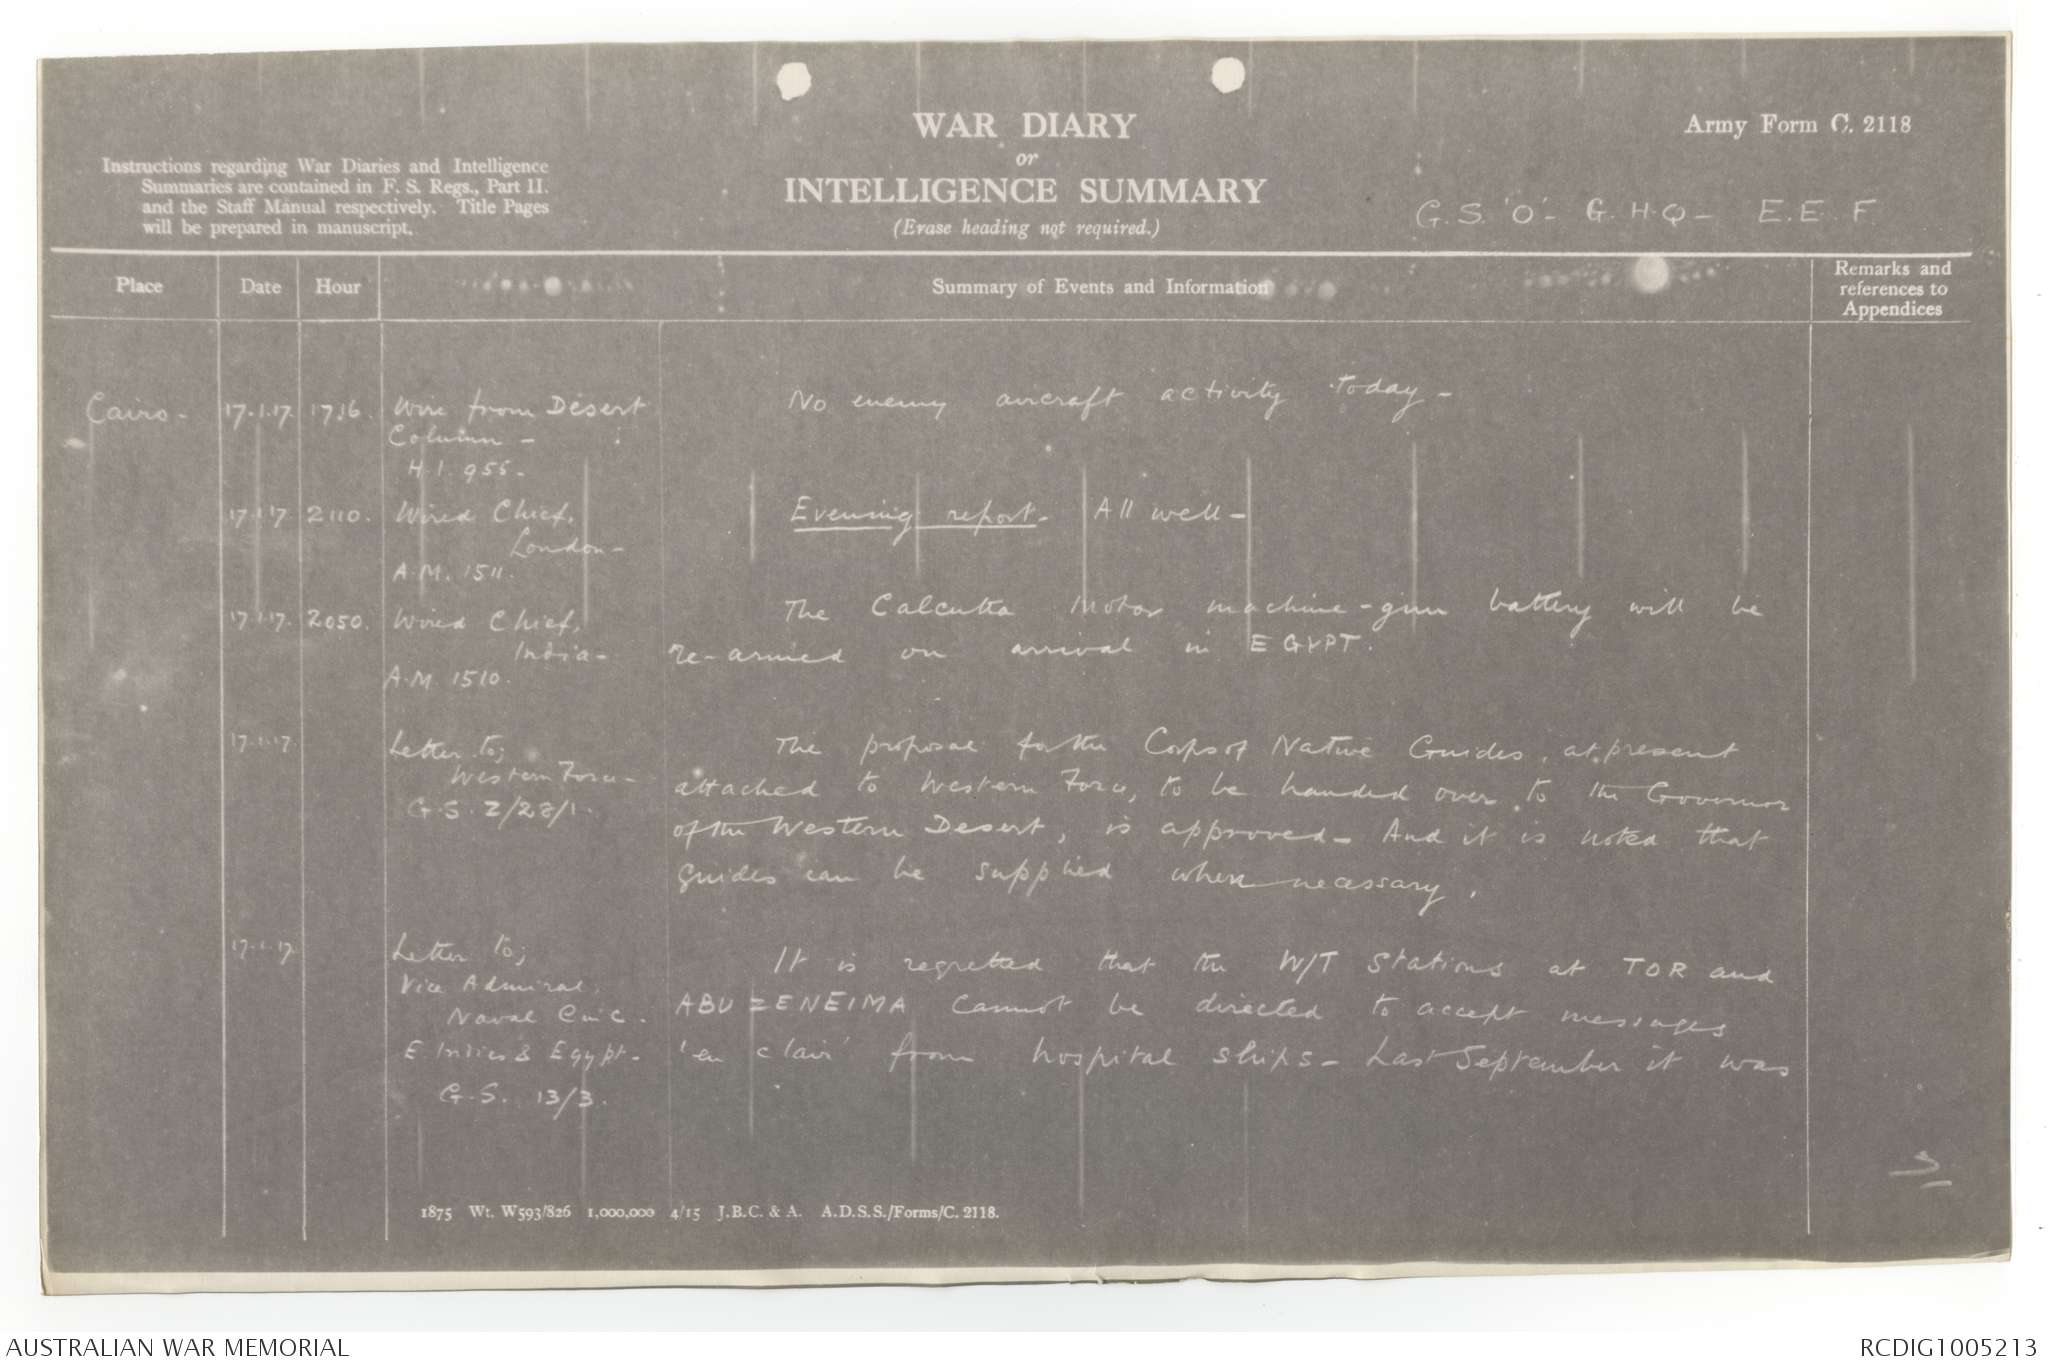 WAR DIARY
or
INTELLIGENCE SUMMARY
(Erase heading not required.)
Army Form C. 2118
Instructions regarding War Diaries and Intelligence
Summaries are contained in F. S. Regs., Part II.
and the Staff Manual respectively. Title Pages
will be prepared in manuscript.
G.S. 'O' - G.H.Q - E.E.F.
Place
Date
Hour
Summary of Events and Information
Remarks and
references to
Appendices
Cairo -
17.1.17.
1716.
Wire from Desert
Column -
H.I. 955 -
No enemy aircraft activity today -
17.1.17.
2110.
Wired Chief,
London -
A.M. 1511.
Evening report - All well -
17.1.17.
2050.
Wired Chief,
India -
A.M. 1510.
The Calcutta Motor machine-gun battery will be
re-armed on arrival in EGYPT.
17.1.17.
Letter to;
Western Force -
G.S. 2/28/1.
The proposal for the Corps of Native Guides, at present
attached to Western Force, to be handed over to the Governor
of the Western Desert, is approved - And it is noted that
guides can be supplied when necessary.
17.1.17.
Letter to;
Vice Admiral,
Naval C in C.
E Indies & Egypt -
G.S. 13/3.
It is regretted that the W/T Stations at TOR and
ABU ZENEIMA cannot be directed to accept messages
'en clair' from hospital ships - Last September it was
1875 Wt. W593/826 1,000,000 4/15 J.B.C. & A. A.D.S.S./Forms/C. 2118.
AUSTRALIAN WAR MEMORIAL
RCDIG1005213